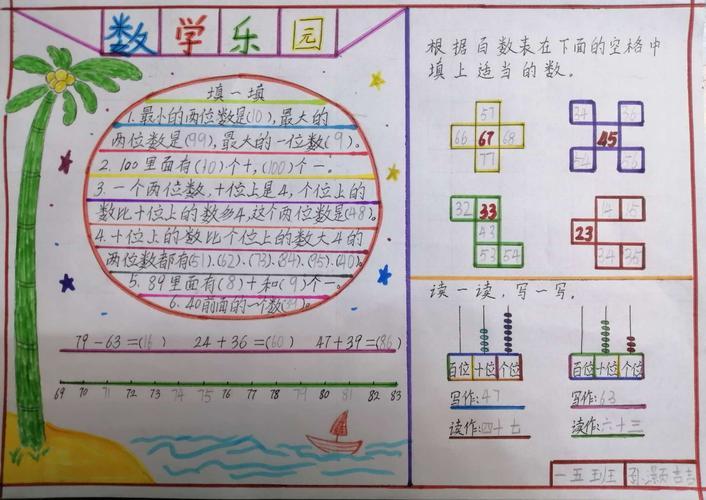 数学乐园
填一填
1.最小的两位数是(10),最大的
两位数是(99),最大的一位数(9)。
2.100里面有(10)个十,(100)个一。
3.一个两位数,十位上是4,个位上的
数比十位上的数多4,这个两位数是(48)。
4.十位上的数比个位上的数大4的
两位数都有(51)、(62)、(73)、(84)、(95)、(40)。
5.89里面有(8)十和(9)个一。
6.40前面的一个数(39)。
79-63=(16) 24+36=(60) 47+39=(86)
69 70 71 72 73 74 75 76 77 78 79 80 81 82 83
根据百数表在下面的空格中
填上适当的数。
57
66 67 68
77
34 36
45
54 56
32 33
43
53 54
14 15
23
34 35
读一读,写一写。
百位 十位 个位
写作:47
读作:四十七
百位 十位 个位
写作:63
读作:六十三
一五班 灏吉吉